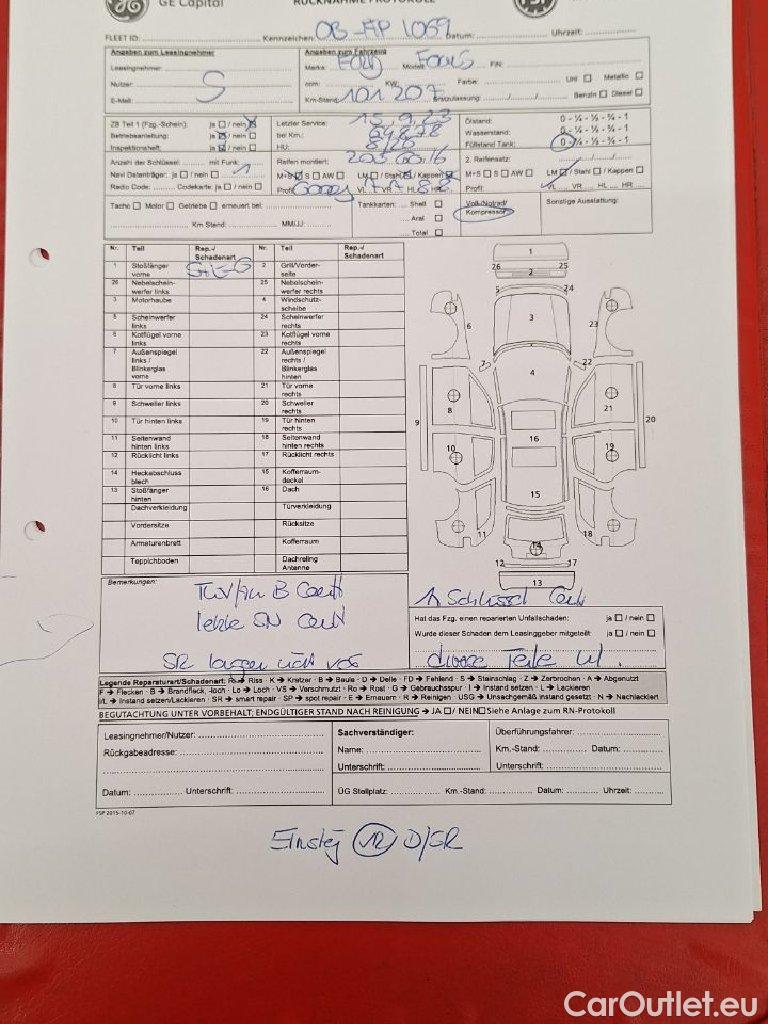 GE Capital
RÜCKNAHME PROTOKOLL
FLEET ID: Kennzeichen: OB-AP 1069 Datum: Uhrzeit:
Angaben zum Leasingnehmer Angaben zum Fahrzeug
Leasingnehmer: Marke: Ford Modell: Focus FIN:
Nutzer: S ccm: KW: Farbe: Uni Metallic
E-Mail: Km-Stand: 101207 Erstzulassung: Benzin Diesel
ZB Teil 1 (Fzg.-Schein): ja / nein Letzter Service: 15.9.23 Ölstand: 0 - ¼ - ½ - ¾ - 1
Betriebsanleitung: ja / nein bei Km.: Wasserstand: 0 - ¼ - ½ - ¾ - 1
Inspektionsheft: ja / nein HU: 8/26 Füllstand Tank: 0 - ¼ - ½ - ¾ - 1
Anzahl der Schlüssel: mit Funk: 1 Reifen montiert: 205 60 16 2. Reifensatz:
Navi Datenträger: ja / nein M+S S AW LM / Stahl / Kappen M+S S AW LM / Stahl / Kappen
Radio Code: Codekarte: ja / nein Profil: VL VR HL HR: Profil: VL VR HL HR:
Tacho Motor Getriebe erneuert bei: Tankkarten: Shell Voll-/Notrad/ Sonstige Ausstattung:
Aral Kompressor
Km Stand: MM/JJ: Total
Nr. Teil Rep.-/ Schadenart Nr. Teil Rep.-/ Schadenart
1 Stoßfänger vorne 2 Grill/Vorderseite
26 Nebelscheinwerfer links 25 Nebelscheinwerfer rechts
3 Motorhaube 4 Windschutzscheibe
5 Scheinwerfer links 24 Scheinwerfer rechts
6 Kotflügel vorne links 23 Kotflügel vorne rechts
7 Außenspiegel links / Blinkerglas vorne 22 Außenspiegel rechts / Blinkerglas hinten
8 Tür vorne links 21 Tür vorne rechts
9 Schweller links 20 Schweller rechts
10 Tür hinten links 19 Tür hinten rechts
11 Seitenwand hinten links 18 Seitenwand hinten rechts
12 Rücklicht links 17 Rücklicht rechts
14 Heckabschlussblech 15 Kofferraumdeckel
13 Stoßfänger hinten 16 Dach
Dachverkleidung Türverkleidung
Vordersitze Rücksitze
Armaturenbrett Kofferraum
Teppichboden Dachreling Antenne
1
26 25
2
5 24
6 3 23
7 22
4
9 8 21 20
16
10 19
15
11 14 18
12 17
13
Bemerkungen:
1 Schlüssel
SR liegen nicht vor
Hat das Fzg. einen reparierten Unfallschaden: ja / nein
Wurde dieser Schaden dem Leasinggeber mitgeteilt: ja / nein
diverse Teile
Legende Reparaturart/Schadenart: Rs➔ Riss - K➔ Kratzer - B➔ Beule - D➔ Delle - FD➔ Fehlend - S➔ Steinschlag - Z➔ Zerbrochen - A➔ Abgenutzt
F➔ Flecken - B➔ Brandfleck, -loch - Lo➔ Loch - VS➔ Verschmutzt - Ro➔ Rost - G➔ Gebrauchsspur - I➔ Instand setzen - L➔ Lackieren
I/L➔ Instand setzen/Lackieren - SR➔ smart repair - SP➔ spot repair - E➔ Erneuern - R➔ Reinigen - USG➔ Unsachgemäß instand gesetzt - N➔ Nachlackiert
BEGUTACHTUNG UNTER VORBEHALT; ENDGÜLTIGER STAND NACH REINIGUNG ➔ JA / NEIN Siehe Anlage zum RN-Protokoll
Leasingnehmer/Nutzer: Sachverständiger: Überführungsfahrer:
Rückgabeadresse: Name: Km.-Stand: Datum:
Unterschrift: Unterschrift:
Datum: Unterschrift: ÜG Stellplatz: Km.-Stand: Datum: Uhrzeit:
FSP 2015-10-07
Einstieg VR D/SR
CarOutlet.eu